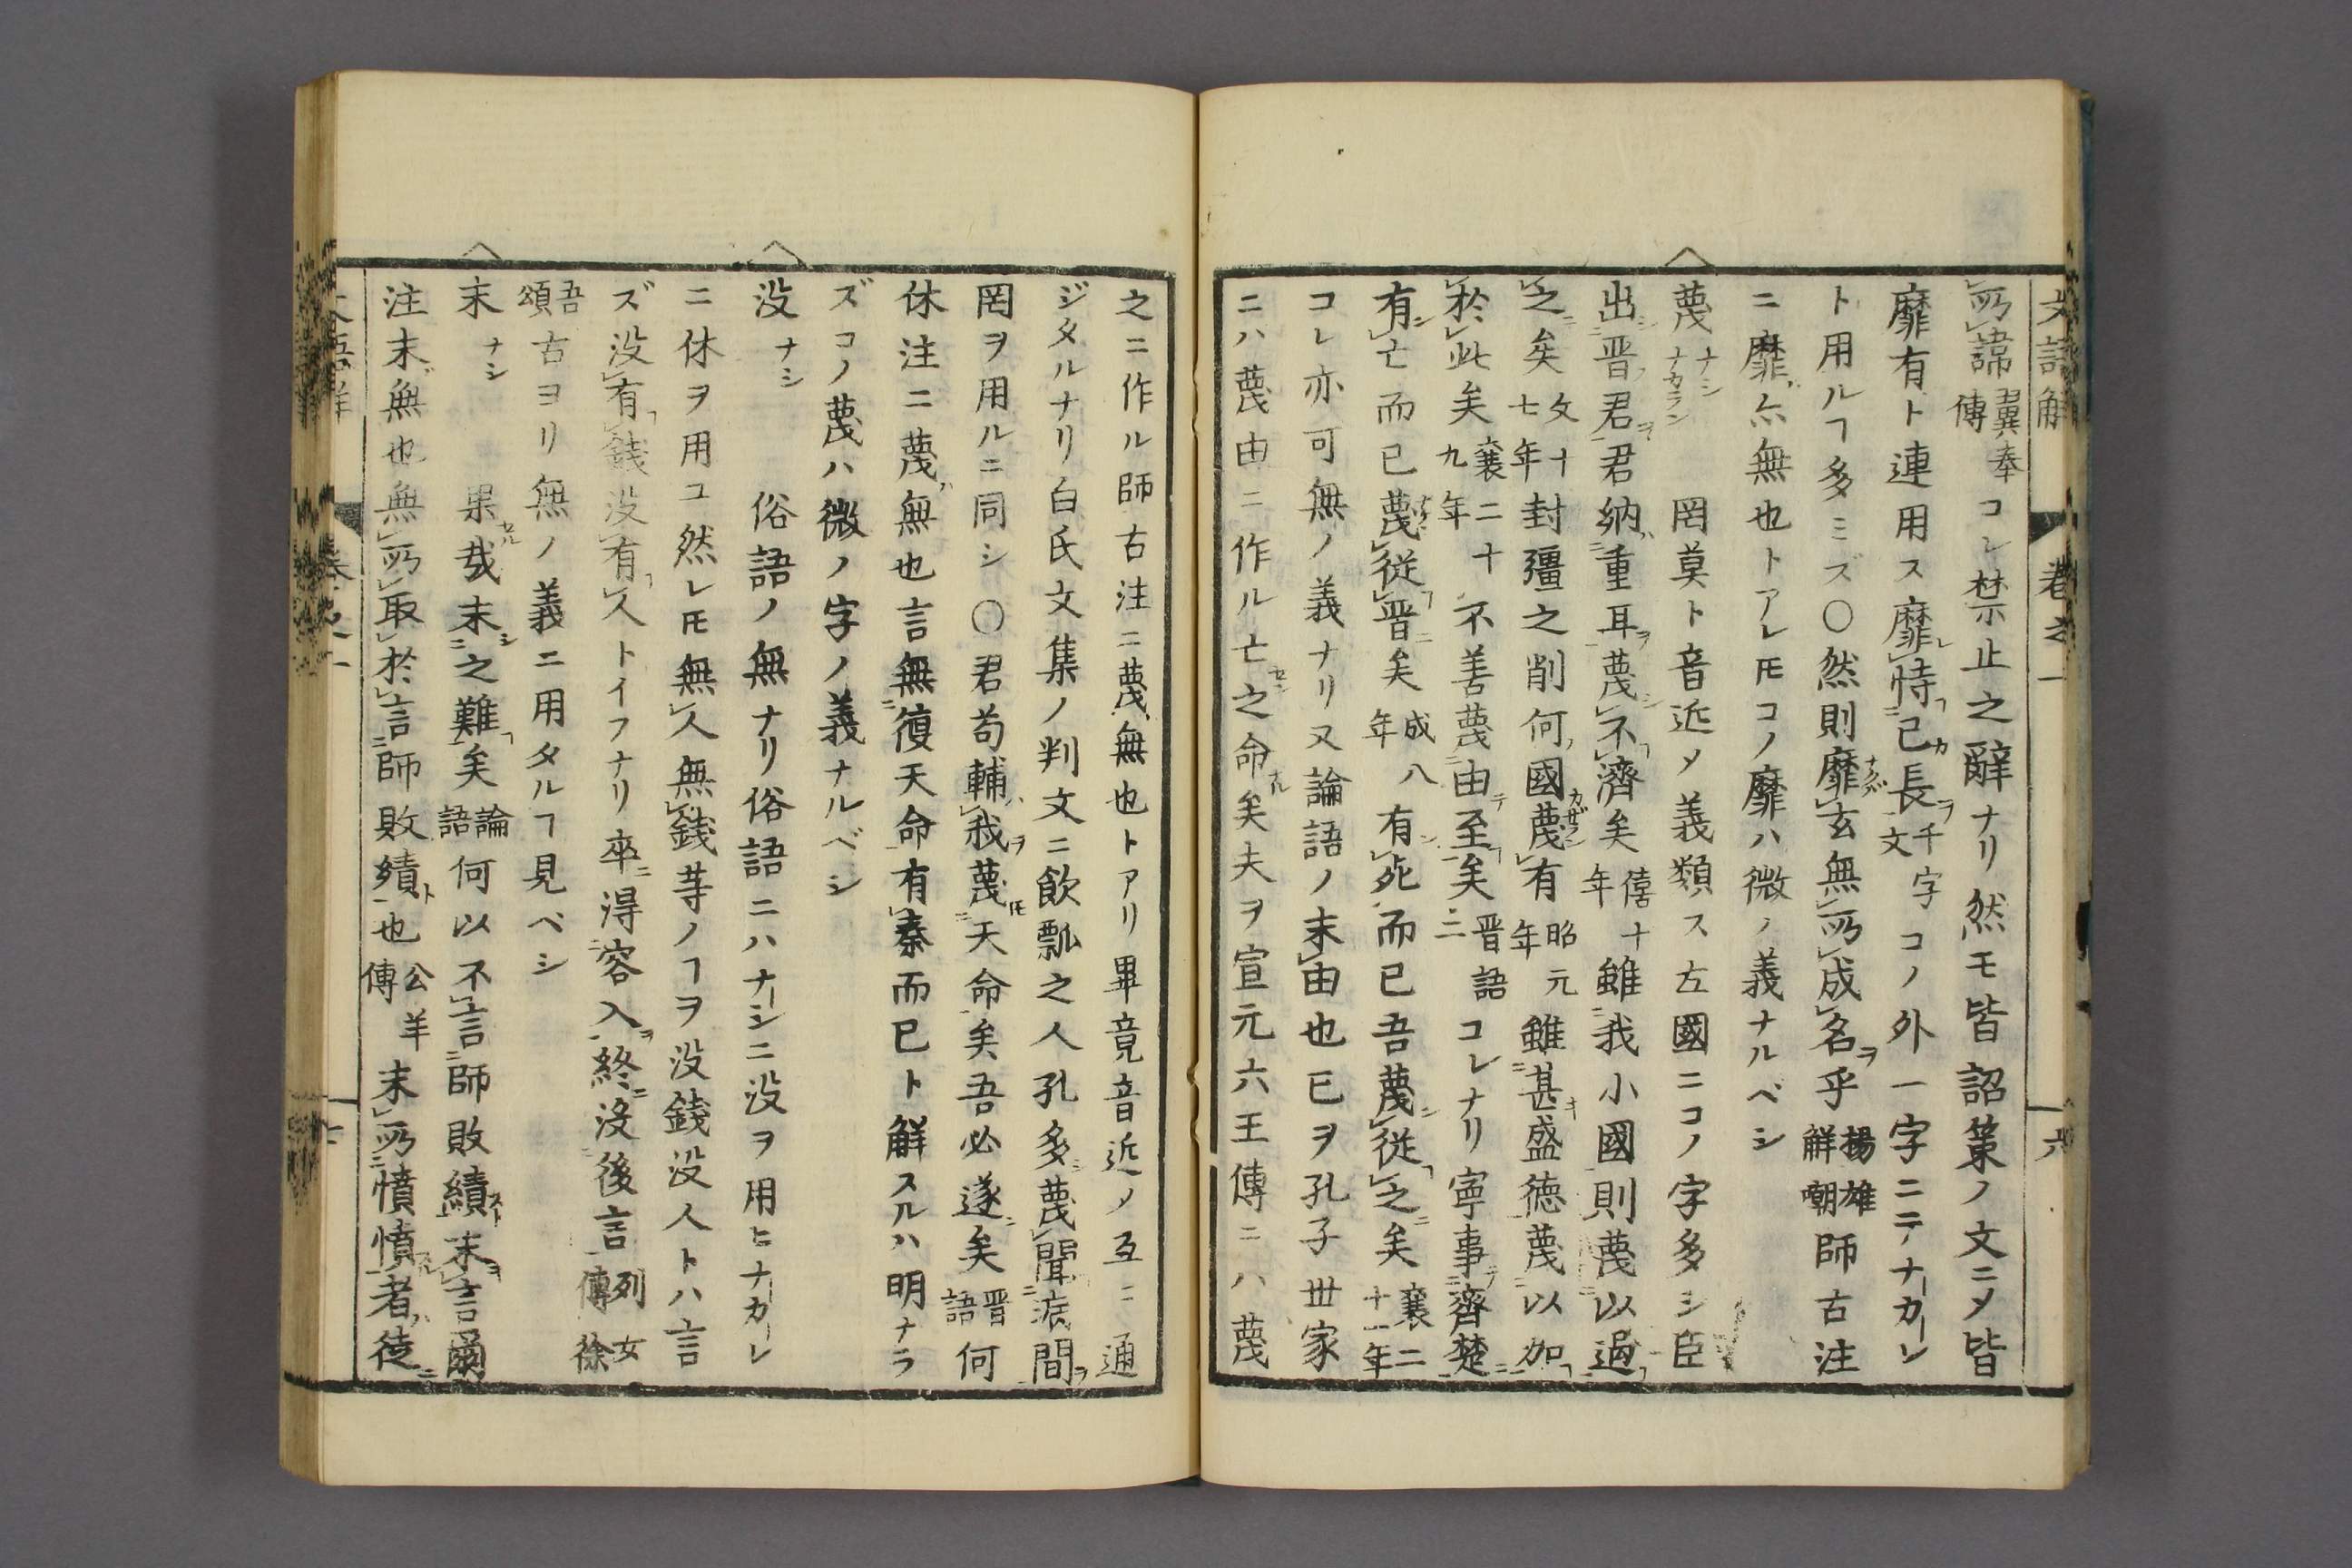 文語解 巻之一 六
所諱翼奉傳コレ禁止之辭ナリ然モ皆詔策ノ文ニメ皆
靡有ト連用ス靡恃己長千字文コノ外一字ニテナカレ
ト用ルヿ多ミズ○然則靡玄無所成名乎揚雄解嘲師古注
ニ靡亦無也トアレ𪜈コノ靡ハ微ノ義ナルベシ
蔑ナシナカラン 罔莫ト音近メ義類ス左國ニコノ字多シ臣
出晋君君納重耳蔑不濟矣僖十年雖我小國則蔑以過
之矣文十七年封疆之削何國蔑有昭元年雖甚盛徳蔑以加
於此矣襄二十九年不善蔑由至矣晋語二コレナリ寧事齊楚
有亡而已蔑從晋矣成八年有死而已吾蔑從之矣襄二十一年
コレ亦可無ノ義ナリ又論語ノ末由也已ヲ孔子世家
ニハ蔑由ニ作ル亡之命矣夫ヲ宣元六王傳ニハ蔑
之ニ作ル師古注ニ蔑無也トアリ畢竟音近メ互ニ通
ジタルナリ白氏文集ノ判文ニ飲瓢之人孔多蔑聞浪間
罔ヲ用ルニ同シ○君苟輔我蔑天命矣吾必遂矣晋語何
休注ニ蔑無也言無復天命有秦而已ト解スルハ明ナラ
ズコノ蔑ハ微ノ字ノ義ナルベシ
没ナシ 俗語ノ無ナリ俗語ニハナシニ没ヲ用ヒナカレ
ニ休ヲ用ユ然レ𪜈無人無錢等ノヿヲ没錢没人トハ言
ズ没有錢没有人トイフナリ卒得容入終没後言列女傳徐
吾頌古ヨリ無ノ義ニ用タルヿ見ベシ
末ナシ 果哉末之難矣論語何以不言師敗績末言爾
注末無也無所取於言師敗績也公羊傳末所憤憤者徒